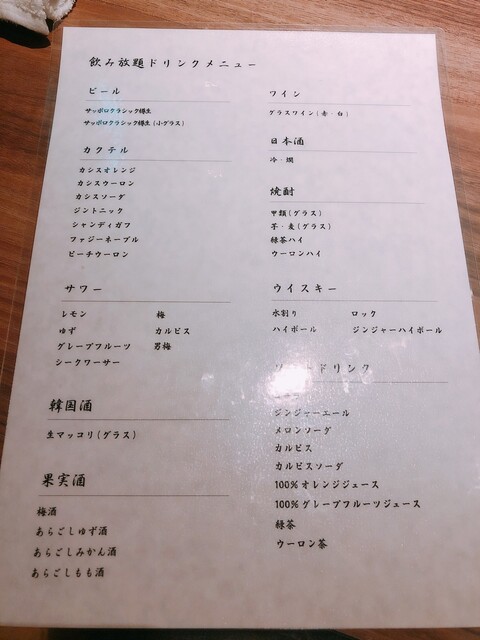 飲み放題ドリンクメニュー
ビール
サッポロクラシック樽生
サッポロクラシック樽生(小グラス)
カクテル
カシスオレンジ
カシスウーロン
カシスソーダ
ジントニック
シャンディガフ
ファジーネーブル
ピーチウーロン
サワー
レモン 梅
ゆず カルピス
グレープフルーツ 男梅
シークワーサー
韓国酒
生マッコリ(グラス)
果実酒
梅酒
あらごしゆず酒
あらごしみかん酒
あらごしもも酒
ワイン
グラスワイン(赤・白)
日本酒
冷・燗
焼酎
甲類(グラス)
芋・麦(グラス)
緑茶ハイ
ウーロンハイ
ウイスキー
水割り ロック
ハイボール ジンジャーハイボール
ドリンク
ジンジャーエール
メロンソーダ
カルピス
カルピスソーダ
100%オレンジジュース
100%グレープフルーツジュース
緑茶
ウーロン茶